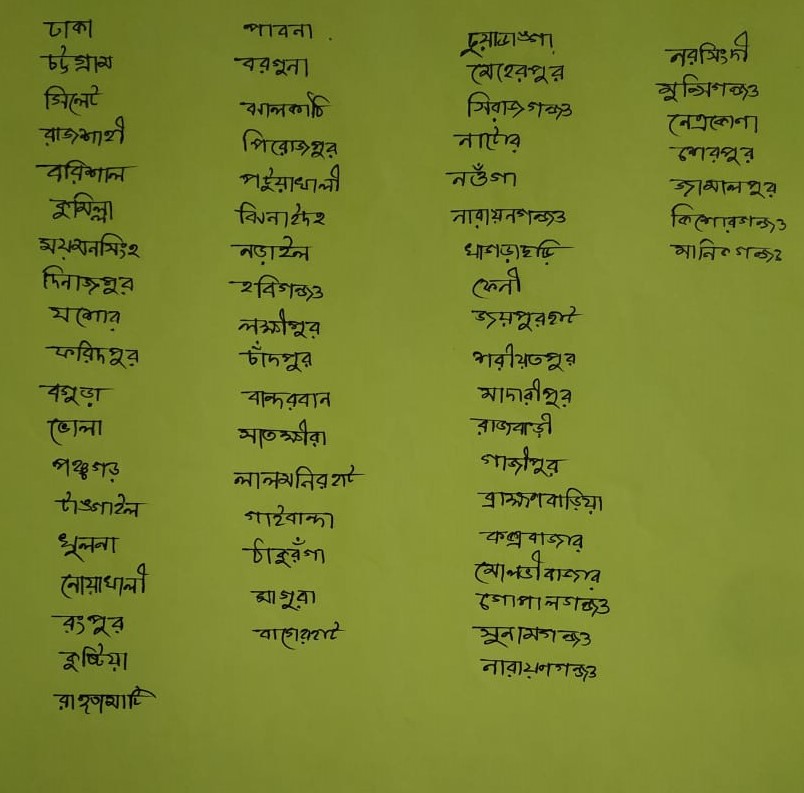 ঢাকা
চট্টগ্রাম
সিলেট
রাজশাহী
বরিশাল
কুমিল্লা
ময়মনসিংহ
দিনাজপুর
যশোর
ফরিদপুর
বগুড়া
ভোলা
পঞ্চগড়
টাঙ্গাইল
খুলনা
নোয়াখালী
রংপুর
কুষ্টিয়া
রাঙ্গামাটি
পাবনা
বরগুনা
ঝালকাঠি
পিরোজপুর
পটুয়াখালী
ঝিনাইদহ
নড়াইল
হবিগঞ্জ
লক্ষীপুর
চাঁদপুর
বান্দরবান
সাতক্ষীরা
লালমনিরহাট
গাইবান্ধা
ঠাকুরগাঁ
মাগুরা
বাগেরহাট
চুয়াডাঙ্গা
মেহেরপুর
সিরাজগঞ্জ
নাটোর
নওঁগা
নারায়নগঞ্জ
খাগড়াছড়ি
ফেনী
জয়পুরহাট
শরীয়তপুর
মাদারীপুর
রাজবাড়ী
গাজীপুর
ব্রাহ্মণবাড়িয়া
কক্সবাজার
মৌলভীবাজার
গোপালগঞ্জ
সুনামগঞ্জ
নারায়ণগঞ্জ
নরসিংদী
মুন্সিগঞ্জ
নেত্রকোণা
শেরপুর
জামালপুর
কিশোরগঞ্জ
মানিকগঞ্জ